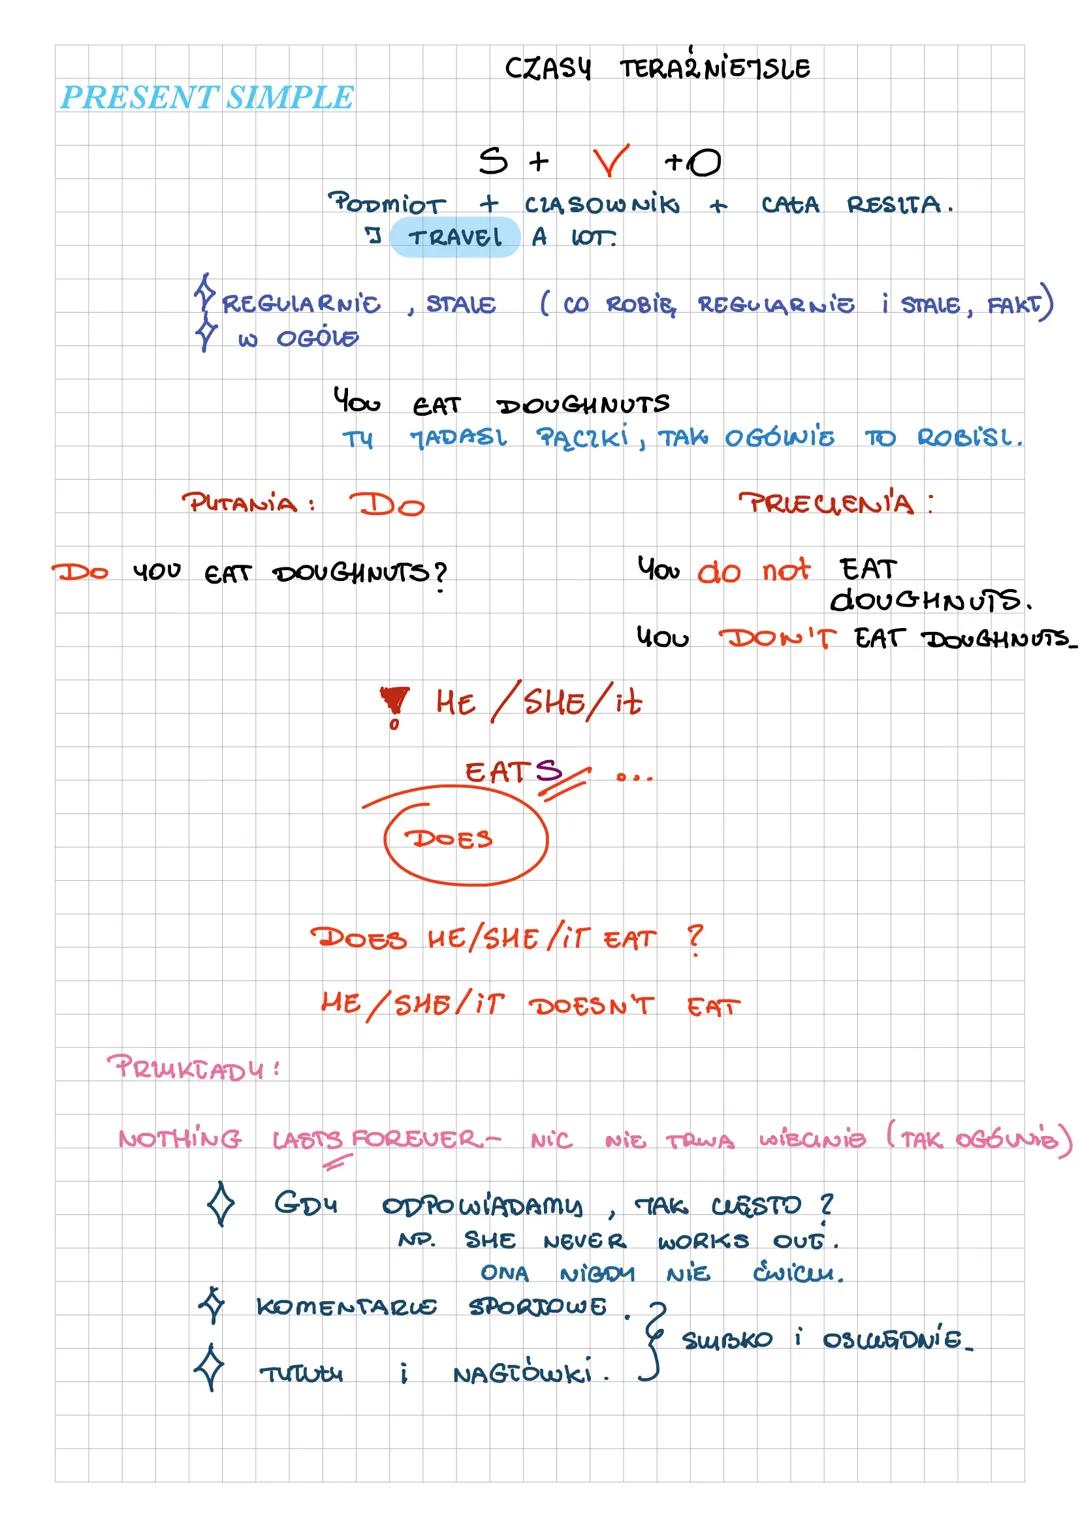 CZASY TERAŹNIEJSZE
PRESENT SIMPLE
S + V + O
PODMIOT + CZASOWNIK + CAŁA RESZTA.
I TRAVEL A LOT.
REGULARNIE, STALE (CO ROBIĘ REGULARNIE i STALE, FAKT)
W OGÓLE
YOU EAT DOUGHNUTS
TY JADASZ PĄCZKI, TAK OGÓLNIE TO ROBISZ.
PYTANIA: DO
PRZECZENIA:
DO YOU EAT DOUGHNUTS?
YOU do not EAT
DOUGHNUTS.
YOU DON'T EAT DOUGHNUTS.
! HE/SHE/it
EATS ...
DOES
DOES HE/SHE/IT EAT ?
HE/SHE/IT DOESN'T EAT
PRZYKŁADY:
NOTHING LASTS FOREVER - NIC NIE TRWA WIECZNIE (TAK OGÓLNIE)
GDY ODPOWIADAMY, JAK CZĘSTO?
NP. SHE NEVER WORKS OUT.
ONA NIGDY NIE ĆWICZY.
KOMENTARZE SPORTOWE.
SZYBKO i OSZCZĘDNIE.
TYTUŁY i NAGŁÓWKI.